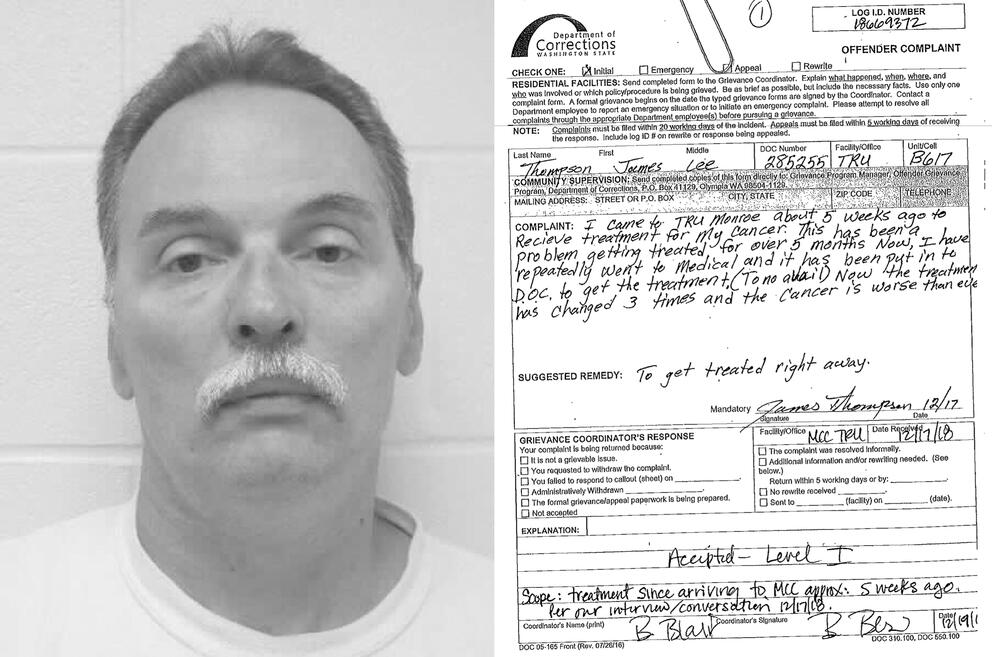 1
LOG I.D. NUMBER
18669372
Department of
Corrections
WASHINGTON STATE
OFFENDER COMPLAINT
CHECK ONE: Initial Emergency Appeal Rewrite
RESIDENTIAL FACILITIES: Send completed form to the Grievance Coordinator. Explain what happened, when, where, and
who was involved or which policy/procedure is being grieved. Be as brief as possible, but include the necessary facts. Use only one
complaint form. A formal grievance begins on the date the typed grievance forms are signed by the Coordinator. Contact a
Department employee to report an emergency situation or to initiate an emergency complaint. Please attempt to resolve all
complaints through the appropriate Department employee(s) before pursuing a grievance.
NOTE: Complaints must be filed within 20 working days of the incident. Appeals must be filed within 5 working days of receiving
the response. Include log ID # on rewrite or response being appealed.
Last Name First Middle DOC Number Facility/Office Unit/Cell
Thompson James Lee 285255 TRU B617
COMMUNITY SUPERVISION: Send completed copies of this form directly to: Grievance Program Manager, Offender Grievance
Program, Department of Corrections, P.O. Box 41129, Olympia WA 98504-1129.
MAILING ADDRESS: STREET OR P.O. BOX CITY, STATE ZIP CODE TELEPHONE
COMPLAINT: I came to TRU Monroe about 5 weeks ago to
Recieve treatment for my cancer. This has been a
problem getting treated, for over 5 months Now, I have
repeatedly went to Medical and it has been put in to
D.O.C. to get the treatment, (To no avail) Now the treatmen
has changed 3 times and the cancer is worse than eve
SUGGESTED REMEDY: To get treated right away.
Mandatory James Thompson 12/17
Signature Date
GRIEVANCE COORDINATOR'S RESPONSE
Your complaint is being returned because:
It is not a grievable issue.
You requested to withdraw the complaint.
You failed to respond to callout (sheet) on
Administratively Withdrawn
The formal grievance/appeal paperwork is being prepared.
Not accepted
Facility/Office MCC TRU Date Received 12/17/18
The complaint was resolved informally.
Additional information and/or rewriting needed. (See
below.)
Return within 5 working days or by:
No rewrite received
Sent to (facility) on (date).
EXPLANATION:
Accepted - Level I
Scope: treatment since arriving to MCC approx: 5 weeks ago.
Per our interview/conversation 12/17/18.
Coordinator's Name (print) B Blair Coordinator's Signature B Date 12/19/1
DOC 05-165 Front (Rev. 07/26/16) DOC 310.100, DOC 550.100